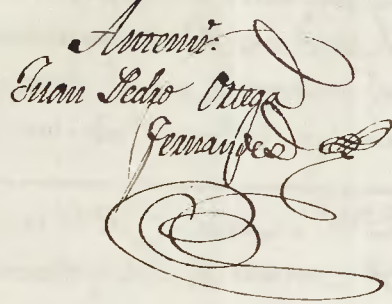 Antemi:
Juan Pedro Ortega
Fernandes